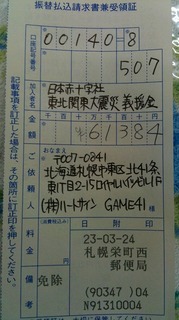 振替払込請求書兼受領証
口座記号番号
00140=8
507
加入者名
日本赤十字社
東北関東大震災義援金
金額
千百十万千百十円
61384
ご依頼人
おなまえ
〒007-0841
北海道札幌市東区北41条
東1丁目2-15ロイヤルハイツビル1F
(株)ハートダイン GAME41 様
料金
(消費税込み)
備考
免除
日附印
23-03-24
札幌栄町西
郵便局
(90347)04
N91310004
記載事項を訂正した場合は、その箇所に訂正印を押してください。